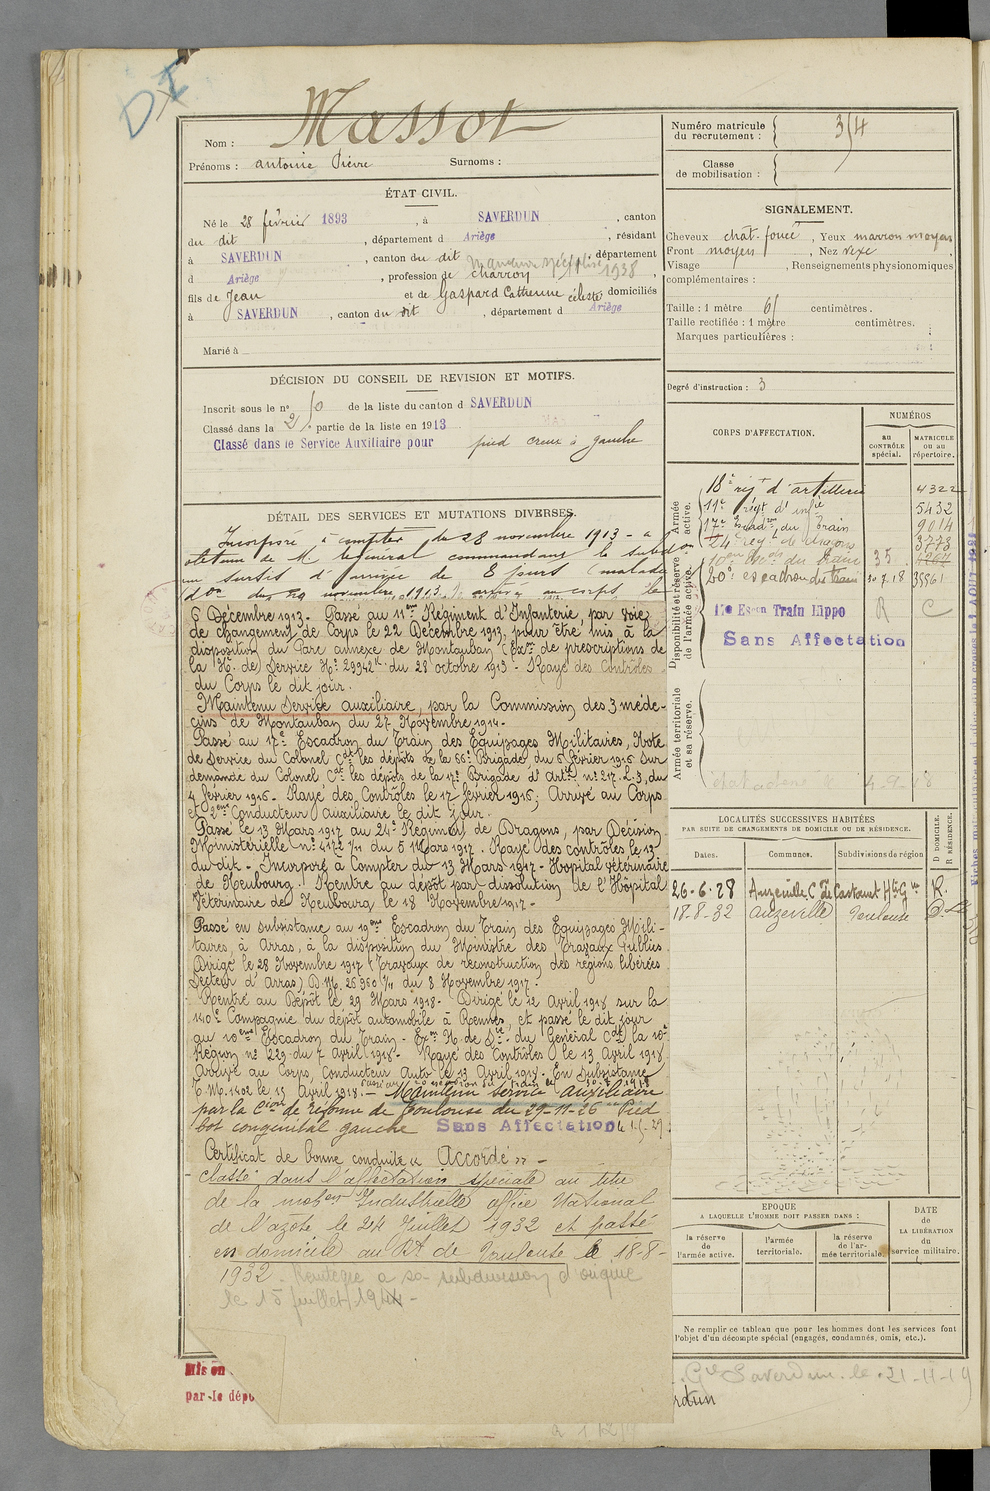 DI
Nom : Massot
Prénoms : antoine Pierre Surnoms :
ÉTAT CIVIL.
Né le 28 février 1893, à SAVERDUN, canton
du dit, département d Ariège, résidant
à SAVERDUN, canton du dit, département
d Ariège, profession de charron 1938,
fils de Jean et de Gaspard Catherine céleste domiciliés
à SAVERDUN, canton du dit, département d Ariège
Marié à
DÉCISION DU CONSEIL DE REVISION ET MOTIFS.
Inscrit sous le n° 50 de la liste du canton d SAVERDUN
Classé dans la 2 partie de la liste en 1913
Classé dans le Service Auxiliaire pour pied creux à gauche
DÉTAIL DES SERVICES ET MUTATIONS DIVERSES.
Incorporé à compter du 28 novembre 1913 - a
obtenu de M. le Général commandant la subdon
un sursis d'arrivée de 8 jours (malade
don du 29 novembre 1913) arrivé au corps le
6 Décembre 1913. Passé au 11eme Régiment d'Infanterie, par voie
de changement de Corps le 22 Décembre 1913, pour être mis à la
disposition du Parc annexe de Montauban (Exon de prescriptions de
la N. de Service N° 29942 du 28 octobre 1913 - Rayé des Contrôles
du Corps le dit jour.
Maintenu Service auxiliaire, par la Commission des 3 méde-
cins de Montauban du 27 Novembre 1914.
Passé au 17e Escadron du Train des Equipages Militaires, Note
de Service du Colonel Cdt les dépôts de la 66e Brigade, du 6 février 1916 sur
demande du Colonel Cdt les dépôts de la 17e Brigade d'Artie n° 217-2.3, du
4 février 1916. Rayé des Contrôles le 17 février 1916; Arrivé au Corps
et 2eme Conducteur auxiliaire le dit jour.
Passé le 13 Mars 1917 au 24e Régiment de Dragons, par Décision
Ministérielle n° 4172 1/11 du 5 Mars 1917. Rayé des contrôles le 13
du dit - Incorporé à Compter du 13 Mars 1917 - Hopital vétérinaire
de Neubourg. Rentré au dépôt par dissolution de l'Hôpital
Vétérinaire de Neubourg le 18 Novembre 1917.
Passé en subsistance au 19eme Escadron du Train des Equipages Mili-
taires, à Arras, à la disposition du Ministre des Travaux Publics.
Dirigé le 28 Novembre 1917 (Travaux de reconstruction des régions libérées
Secteur d'Arras) D.M. 26960 1/11 du 8 Novembre 1917.
Rentré au Dépôt le 29 Mars 1918. Dirigé le 12 Avril 1918 sur la
140e Compagnie du dépôt automobile à Rennes, et passé le dit jour
au 10eme Escadron du Train - Exon N. de Sce du Général Cdt la 10e
Région n° 229 du 7 Avril 1918. Rayé des Contrôles le 13 Avril 1918
Arrivé au Corps, conducteur Auto le 13 Avril 1918. En Subsistance
T.M. 1402 le 15 Avril 1918. - Maintenu service Auxiliaire
par la Cion de réforme de Toulouse du 29-11-26 "Pied
bot congénital gauche Sans Affectation
Certificat de bonne conduite "Accordé" -
classé dans l'affectation spéciale au titre
de la mobon Industrielle office National
de l'azote le 24 Juillet 1932 et passé
en domicile au Rt de Toulouse le 18-8-
1932. Réintégré a sa subdivision d'origine
le 15 juillet 19
Mis en
par le dépô
Numéro matricule du recrutement : 314
Classe de mobilisation :
SIGNALEMENT.
Cheveux chat. foncé, Yeux marron moyen
Front moyen, Nez vexe
Visage, Renseignements physionomiques
complémentaires :
Taille : 1 mètre 61 centimètres.
Taille rectifiée : 1 mètre centimètres.
Marques particulières :
Degré d'instruction : 3
CORPS D'AFFECTATION.
NUMÉROS
AU CONTRÔLE spécial.
MATRICULE ou au répertoire.
Armée active.
18e rigt d'artillerie 4322
11e régt d'infie 5432
17e Escadon du Train 9014
24e régt de dragons 3773
Disponibilité et réserve de l'armée active.
20e escadron du train 35561
17e Escon Train Hippo R C
Sans Affectation
Armée territoriale et sa réserve.
LOCALITÉS SUCCESSIVES HABITÉES
PAR SUITE DE CHANGEMENTS DE DOMICILE OU DE RÉSIDENCE.
Dates. Communes. Subdivisions de région D DOMICILE. R RÉSIDENCE.
26-6-28 Auzeville C de Castanet Hte Gne R.
18-8-32 auzeville Toulouse D
EPOQUE
A LAQUELLE L'HOMME DOIT PASSER DANS :
la réserve de l'armée active.
l'armée territoriale.
la réserve de l'armée territoriale.
DATE de LA LIBÉRATION du service militaire.
Ne remplir ce tableau que pour les hommes dont les services font
l'objet d'un décompte spécial (engagés, condamnés, omis, etc.).
Saverdun le 21-11-19
rdun